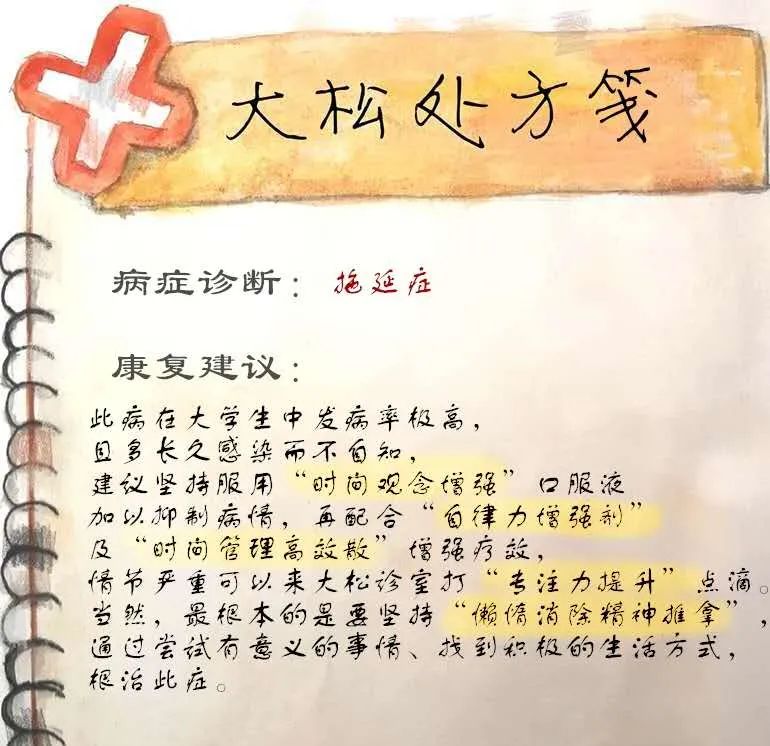 大松处方笺
病症诊断：拖延症
康复建议：
此病在大学生中发病率极高，
且多长久感染而不自知，
建议坚持服用“时间观念增强”口服液
加以抑制病情，再配合“自律力增强剂”
及“时间管理高效散”增强疗效，
情节严重可以来大松诊室打“专注力提升”点滴。
当然，最根本的是要坚持“懒惰消除精神推拿”，
通过尝试有意义的事情、找到积极的生活方式，
根治此症。